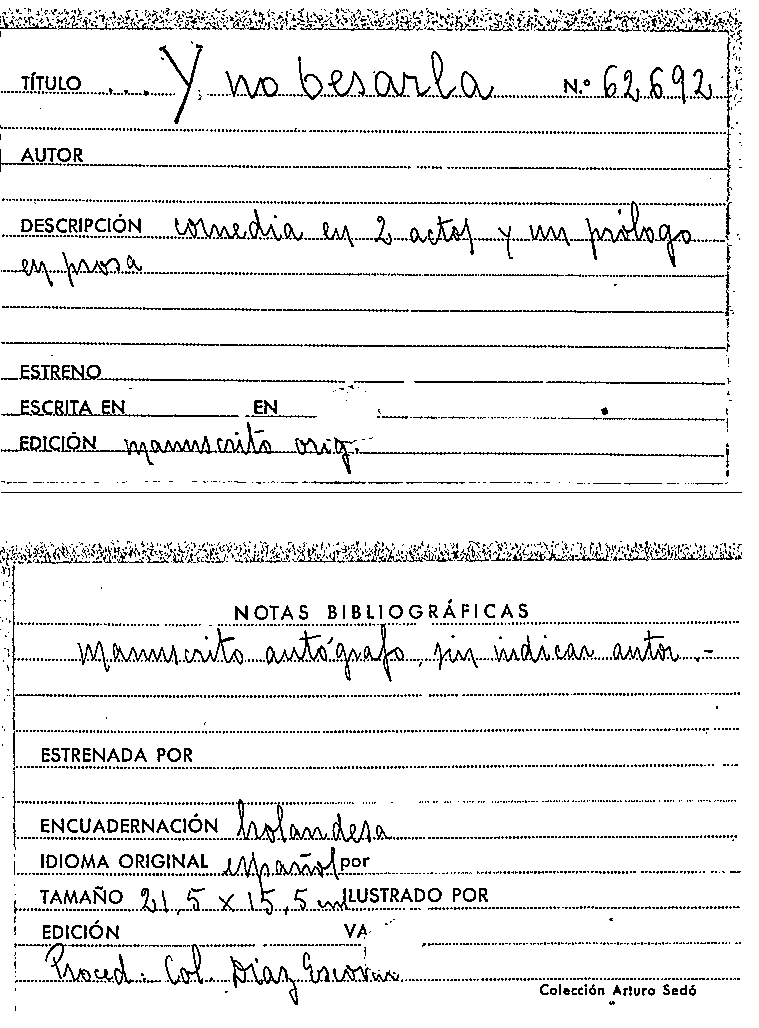 TÍTULO ... Y no besarla N.º 62692
AUTOR
DESCRIPCIÓN comedia en 2 actos y un prólogo
en prosa
ESTRENO
ESCRITA EN EN
EDICIÓN manuscrito orig.
NOTAS BIBLIOGRÁFICAS
Manuscrito autógrafo, sin indicar autor.-
ESTRENADA POR
ENCUADERNACIÓN holandesa
IDIOMA ORIGINAL español por
TAMAÑO 21,5 x 15,5 cm ILUSTRADO POR
EDICIÓN VA
Proced: Col. Díaz Escovar
Colección Arturo Sedó